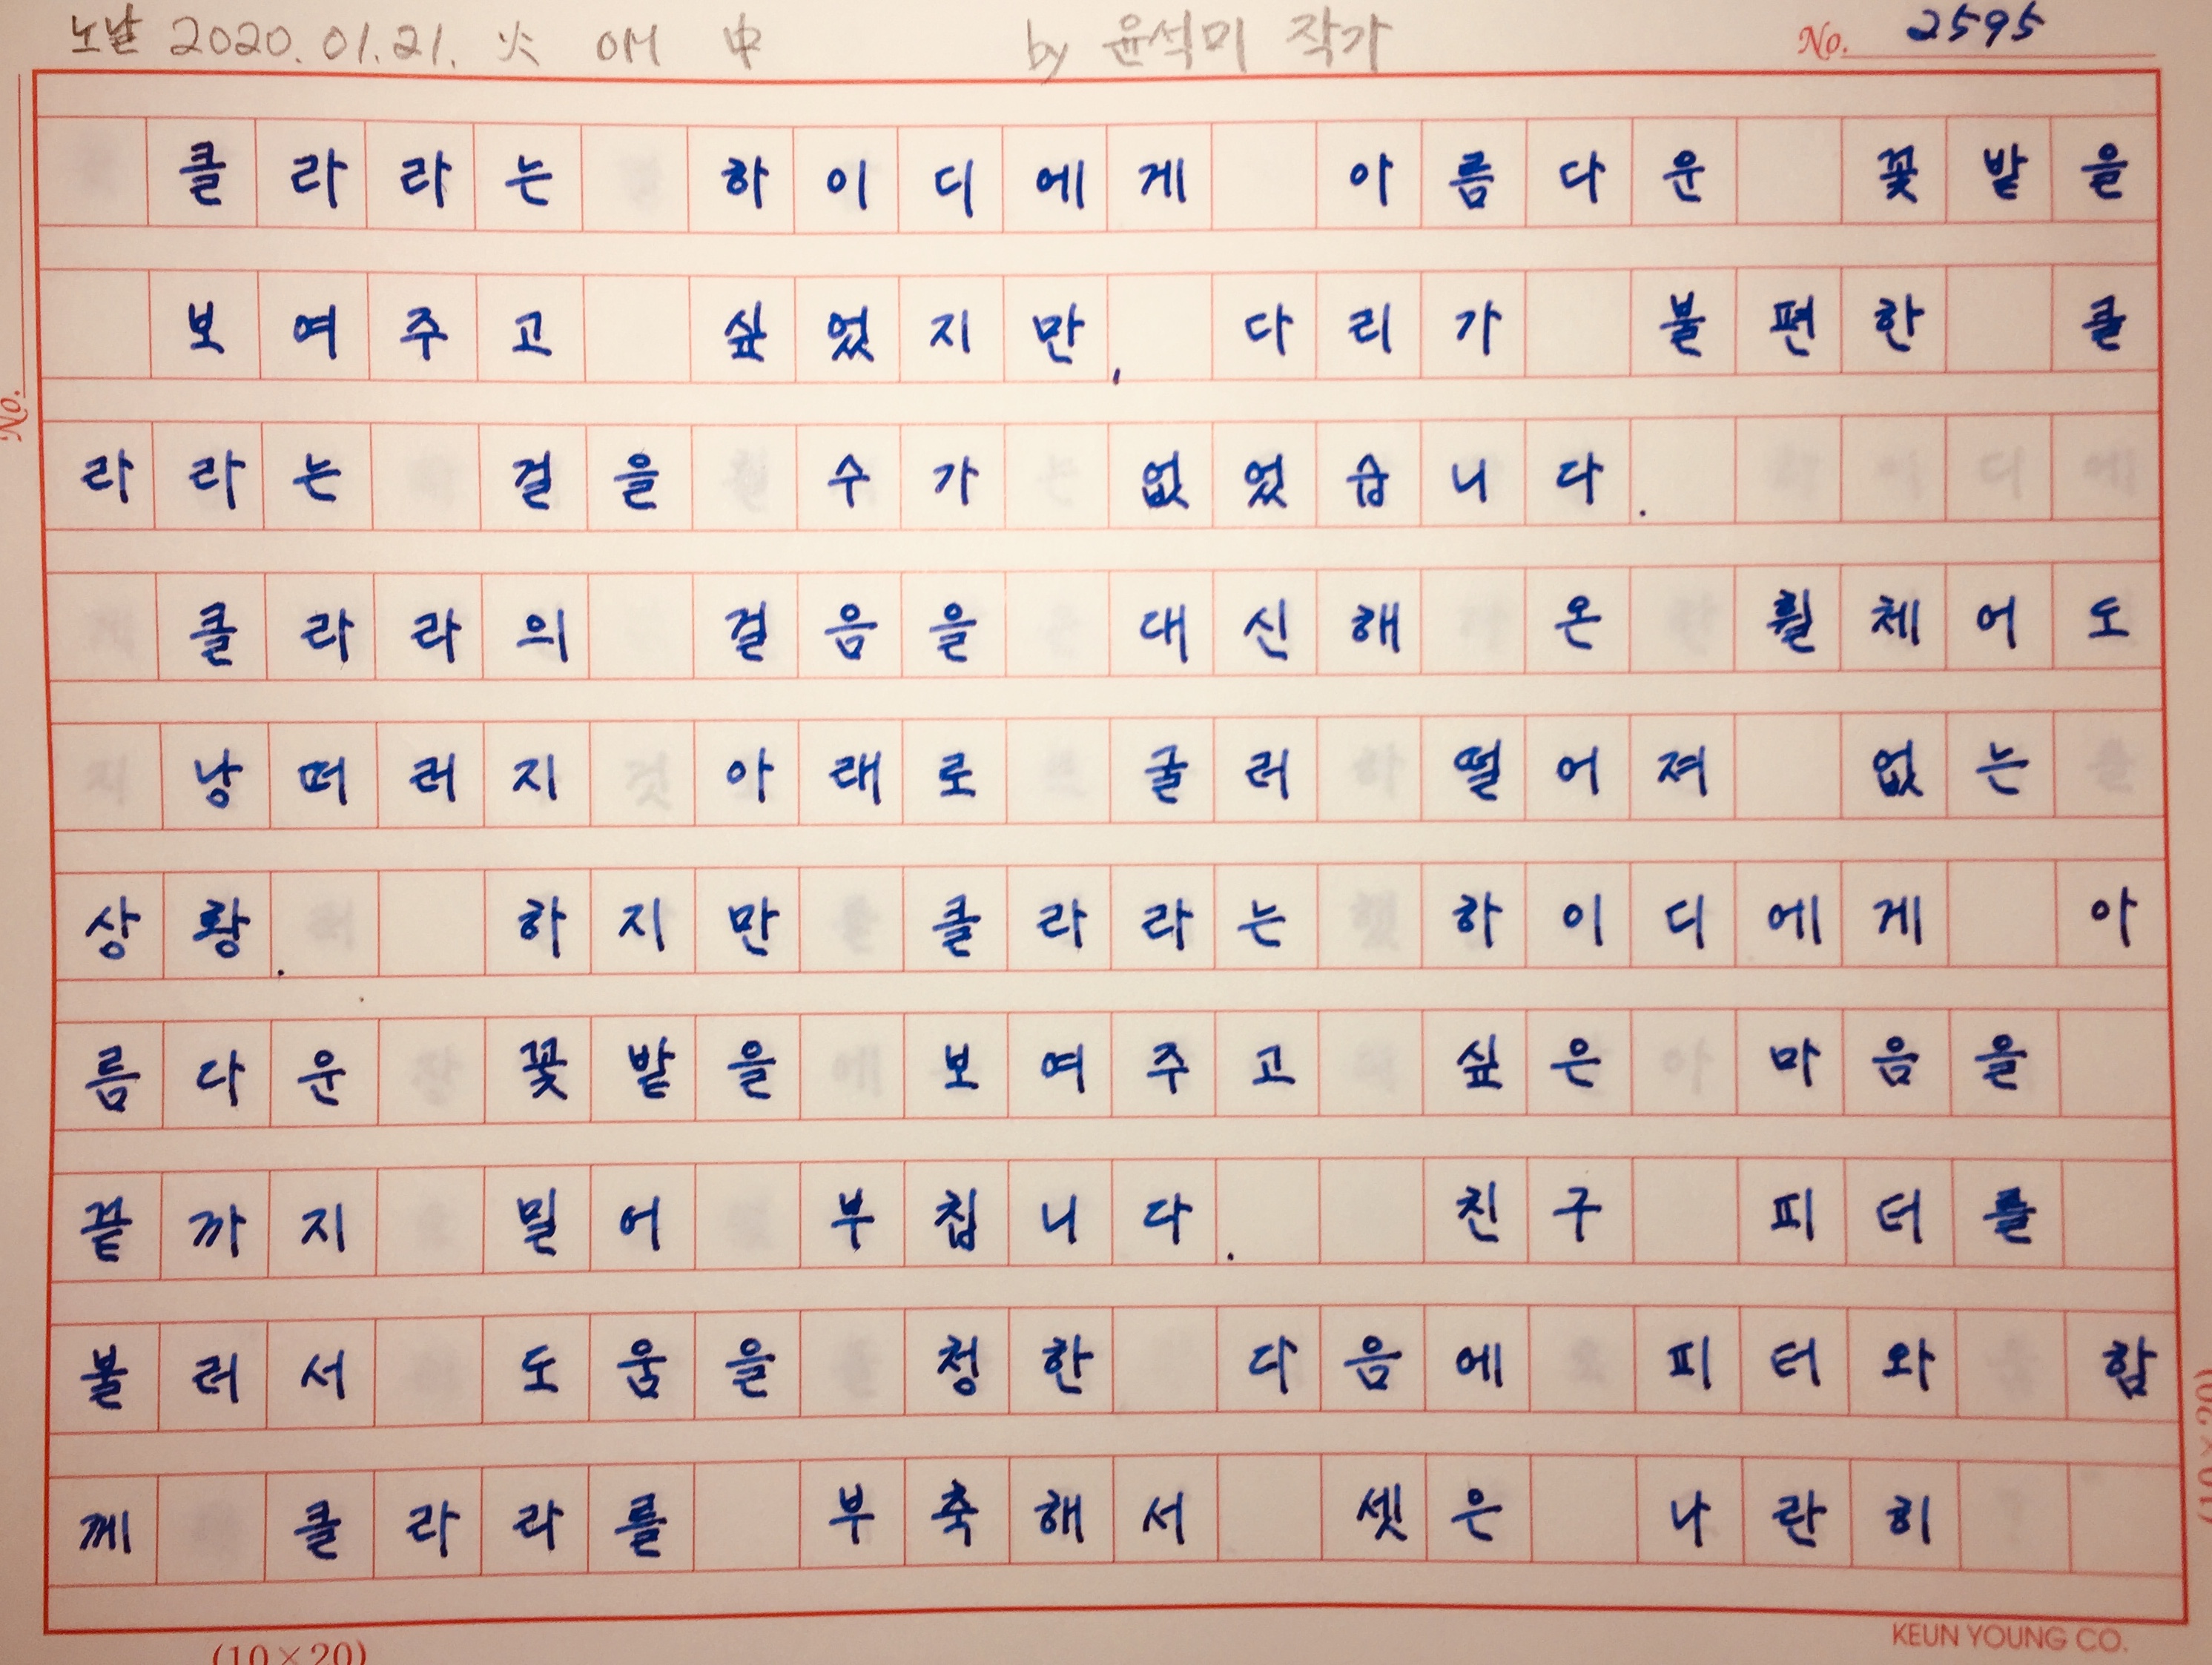 노날 2020.01.21. 火 OM 中 by 윤석미 작가 No. 2595
클라라는 하이디에게 아름다운 꽃밭을
보여주고 싶었지만, 다리가 불편한 클
라라는 걸을 수가 없었습니다.
클라라의 걸음을 대신해 온 휠체어도
낭떠러지 아래로 굴러 떨어져 없는
상황. 하지만 클라라는 하이디에게 아
름다운 꽃밭을 보여주고 싶은 마음을
끝까지 밀어 부칩니다. 친구 피터를
불러서 도움을 청한 다음에 피터와 함
께 클라라를 부축해서 셋은 나란히
No.
(10×20)
(10×20)
KEUN YOUNG CO.